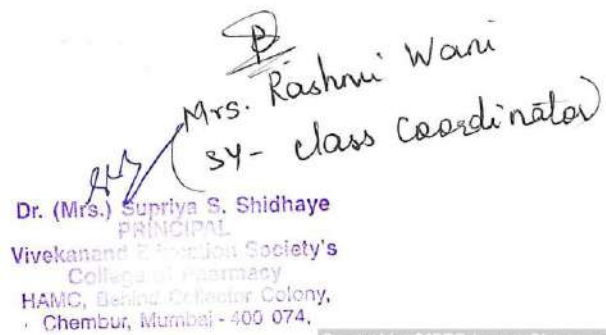 Mrs. Rashmi Wani
(SY- class coordinator)
Dr. (Mrs.) Supriya S. Shidhaye
PRINCIPAL
Vivekanand Education Society's
College of Pharmacy
HAMC, Behind Collector Colony,
Chembur, Mumbai - 400 074,